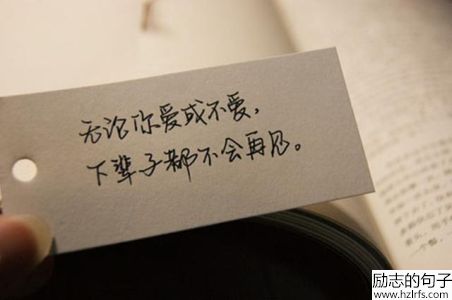 无论你爱或不爱,
下辈子都不会再见。
励志的句子
www.hzlrfs.com